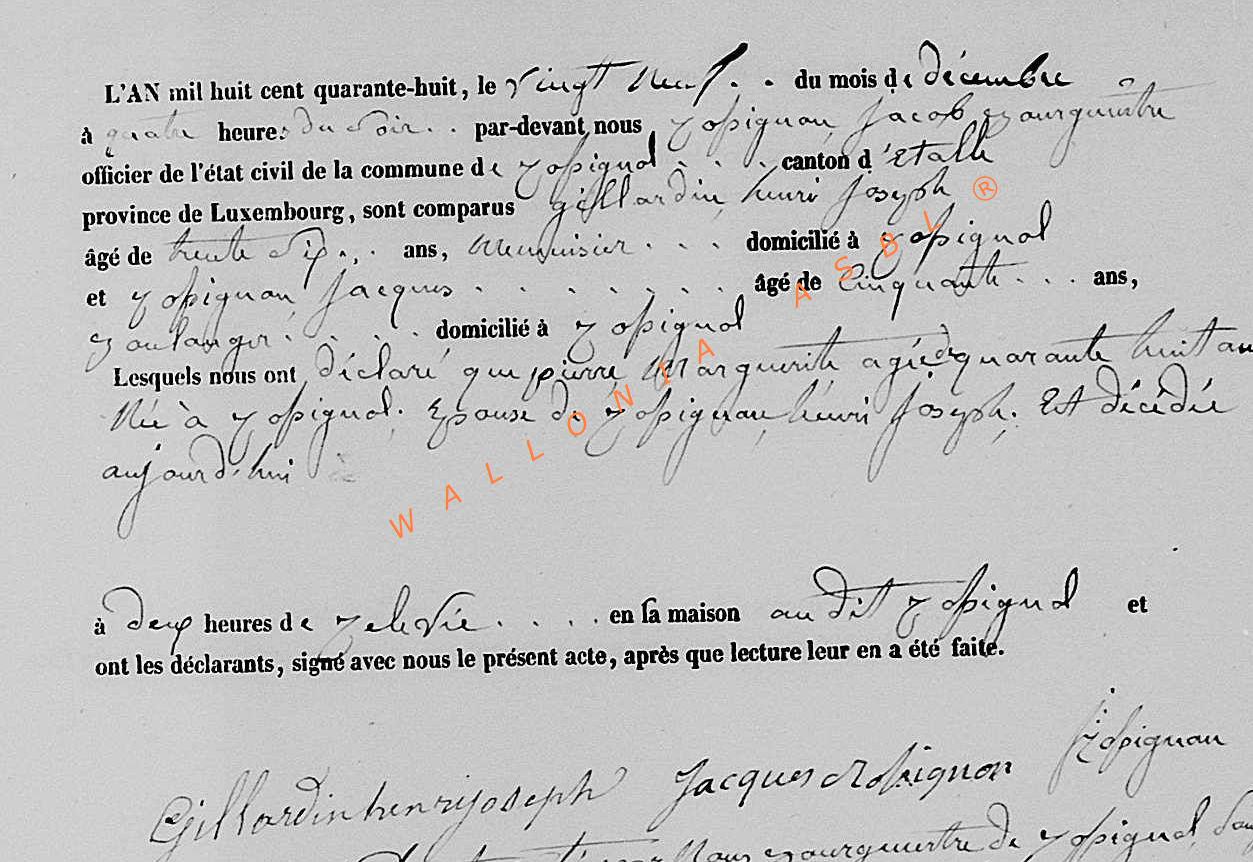 L'AN mil huit cent quarante-huit, le vingt neuf . . du mois de décembre
à quatre heures du soir . . par-devant nous rossignon jacob Bourguemêtre
officier de l'état civil de la commune de rossignol . . . . canton d'Etalle
province de Luxembourg, sont comparus gillardin henri joseph
âgé de trente six . , . ans, menuisier . . . domicilié à rossignol
et rossignon jacques . . . . . . . âgé de Cinquante . . . ans,
Boulanger . . . . . domicilié à rossignol
Lesquels nous ont déclaré que pierre Marguerite agée de quarante huit an
Née à rossignol. Epouse de rossignon henri joseph. Est décédée
aujourd'hui
à deux heures de relevée . . . . en sa maison au dit rossignol et
ont les déclarants, signé avec nous le présent acte, après que lecture leur en a été faite.
Gillardin henri joseph Jacques rossignon rossignon
Bourguemetre de rossignol
WALLONIA ASBL ®